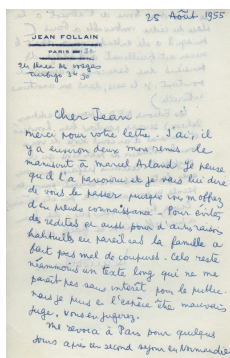 25 Août 1955
JEAN FOLLAIN
PARIS
24 Place des Vosges
Turbigo 34 90
Cher Jean
merci pour votre lettre. J'ai, il
y a environ deux mois remis le
manuscrit à Marcel Arland je pense
qu'il l'a parcouru et je vais lui dire
de vous le passer puisque vous m'offrez
d'en prendre connaissance. Pour éviter
des redites et aussi pour d'autres raisons
habituelles en pareil cas la famille a
fait pas mal de coupures. Cela reste
néanmoins un texte long qui ne me
paraît pas sans intérêt pour le public.
mais je puis et l'espère être mauvais
juge, vous en jugerez.
me revoici à Paris pour quelques
jours après un second séjour en Normandie